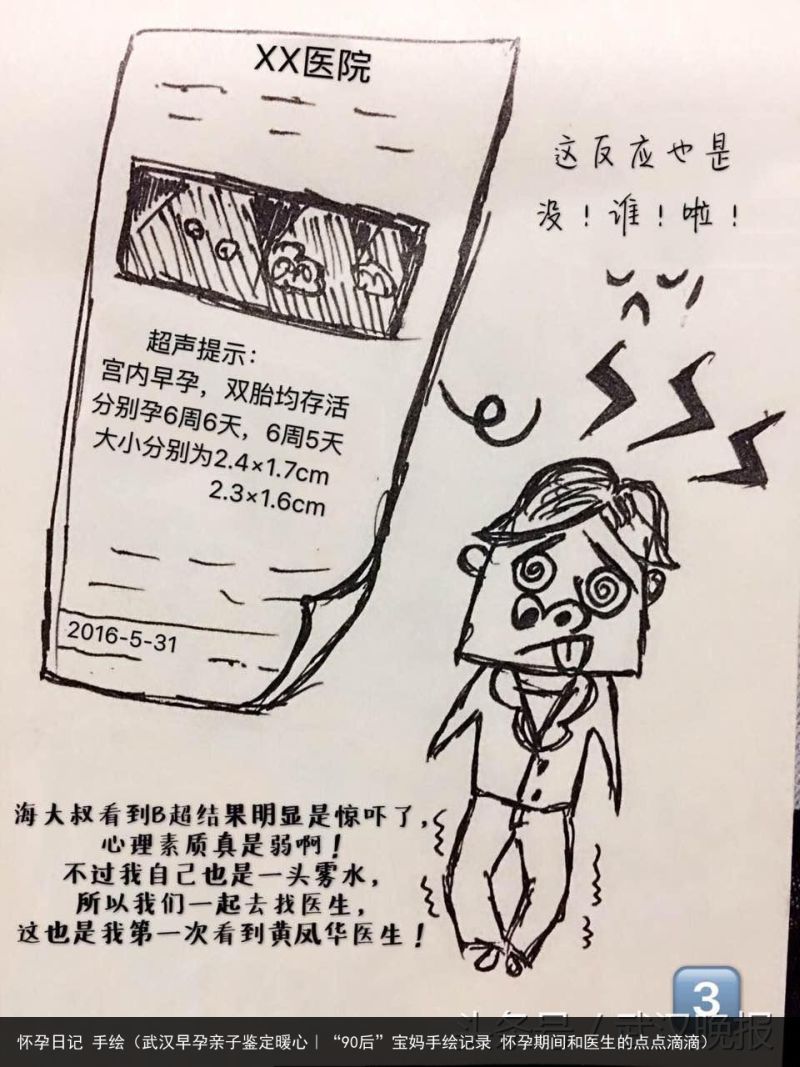 XX医院
这反应也是
没！谁！啦！
超声提示：
宫内早孕，双胎均存活
分别孕6周6天，6周5天
大小分别为2.4×1.7cm
2.3×1.6cm
2016-5-31
海大叔看到B超结果明显是惊吓了，
心理素质真是弱啊！
不过我自己也是一头雾水，
所以我们一起去找医生，
这也是我第一次看到黄凤华医生！
3
头条号/武汉晚报
怀孕日记 手绘（武汉早孕亲子鉴定暖心｜“90后”宝妈手绘记录 怀孕期间和医生的点点滴滴）